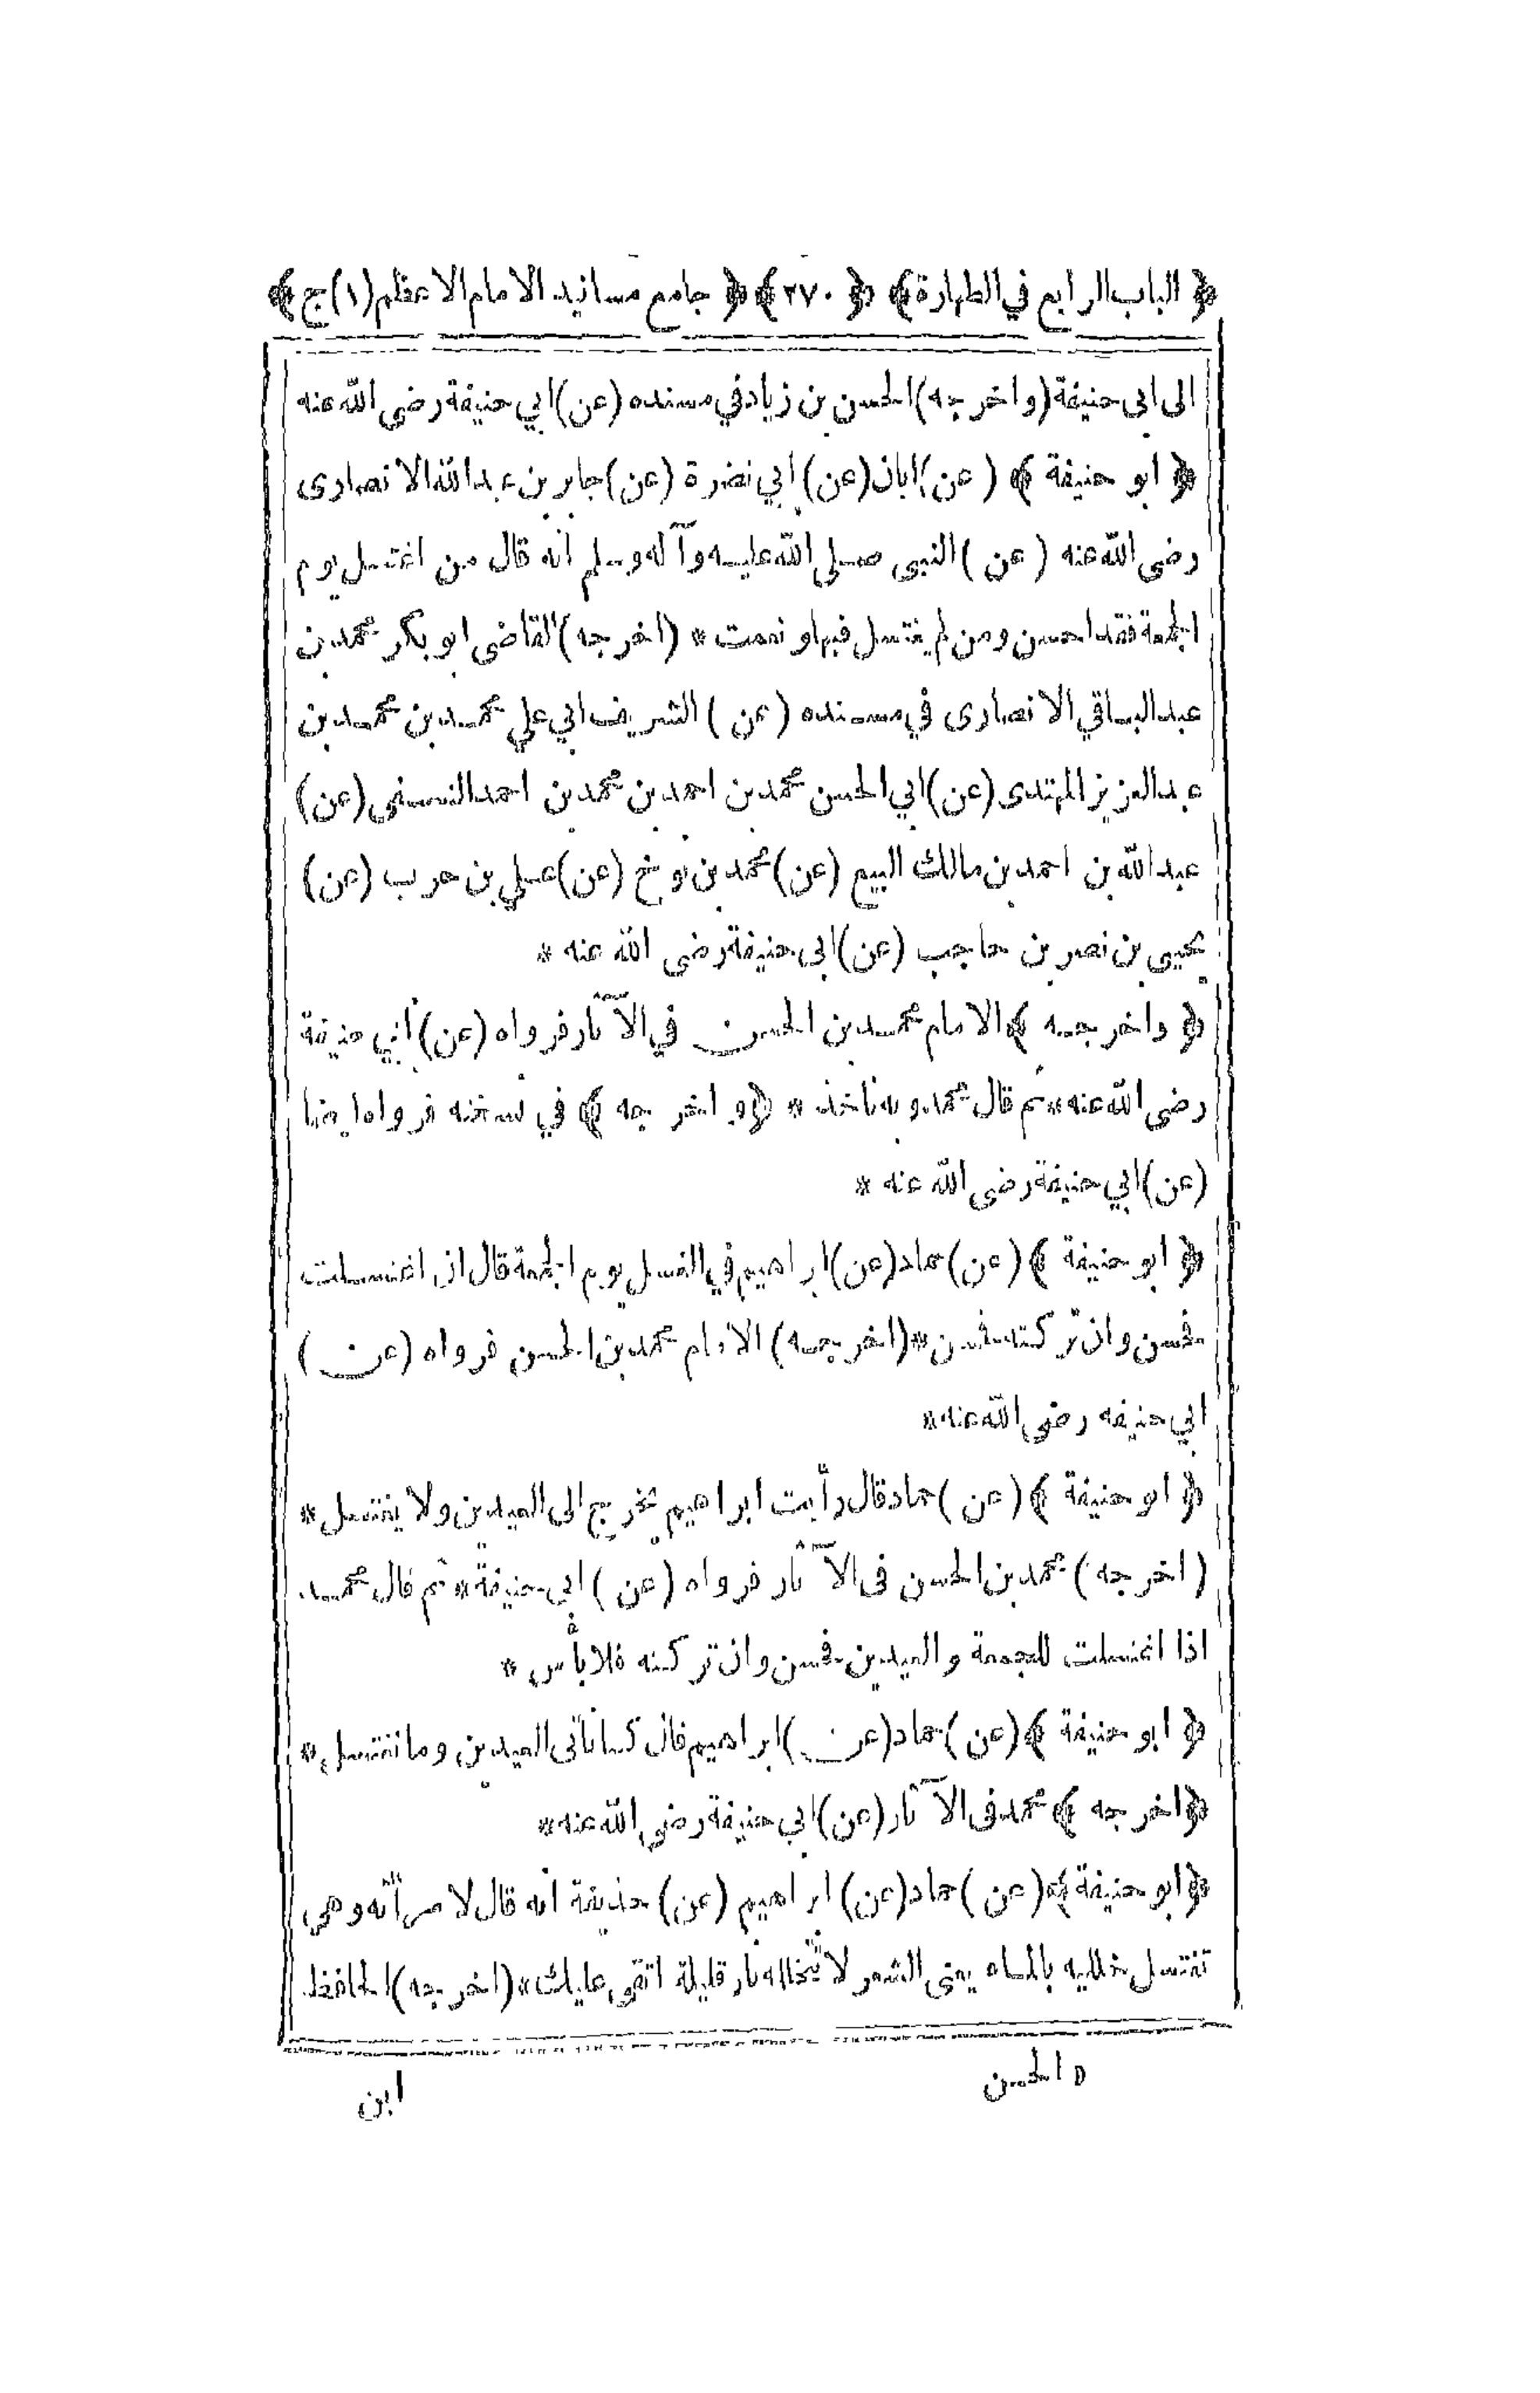 ﴿ الباب الرابع في الطهارة ﴾ ﴿ ٢٧٠ ﴾ ﴿ جامع مسانيد الامام الاعظم (١) ج ﴾
الى ابى حنيفة (واخرجه) الحسن بن زياد في مسنده (عن) ابي حنيفة رضى الله عنه
﴿ ابو حنيفة ﴾ (عن) ابان (عن) ابي نضرة (عن) جابر بن عبد الله الانصارى
رضى الله عنه (عن) النبى صلى الله عليه وآله وسلم انه قال من اغتسل يوم
الجمعة فقد احسن ومن لم يغتسل فبها ونعمت * (اخرجه) القاضى ابو بكر محمد بن
عبد الباقي الانصارى في مسنده (عن) الشريف ابي علي محمد بن محمد بن
عبد العزيز المهتدى (عن) ابي الحسن محمد بن احمد بن محمد بن احمد (عن)
عبد الله بن احمد بن مالك البيع (عن) محمد بن (عن) علي بن حرب (عن)
يحيى بن نصر بن حاجب (عن) ابى حنيفة رضى الله عنه *
﴿ واخرجه ﴾ الامام محمد بن الحسن في الآثار فرواه (عن) ابي حنيفة
رضى الله عنه * ثم قال محمد وبه ناخذ * ﴿ واخرجه ﴾ في نسخته فرواه ايضا
(عن) ابي حنيفة رضى الله عنه *
﴿ ابو حنيفة ﴾ (عن) حماد (عن) ابراهيم في الغسل يوم الجمعة قال ان اغتسلت
فحسن وان تركته فحسن * (اخرجه) الامام محمد بن الحسن فرواه (عن)
ابي حنيفه رضى الله عنه *
﴿ ابو حنيفة ﴾ (عن) حماد قال رأيت ابراهيم يخرج الى العيدين ولا يغتسل *
(اخرجه) محمد بن الحسن فى الآثار فرواه (عن) ابى حنيفة * ثم قال محمد
اذا اغتسلت للجمعة والعيدين فحسن وان تركته فلا بأس *
﴿ ابو حنيفة ﴾ (عن) حماد (عن) ابراهيم قال كنا ناتى العيدين وما نغتسل *
﴿ اخرجه ﴾ محمد فى الآثار (عن) ابي حنيفة رضى الله عنه *
﴿ ابو حنيفة ﴾ (عن) حماد (عن) ابراهيم (عن) حذيفة انه قال لامرأته وهى
تغتسل خلليه بالماء يعنى الشعر لا تخلله نار قليلة اتقى عليك * (اخرجه) الحافظ
ه الحسن
ابن